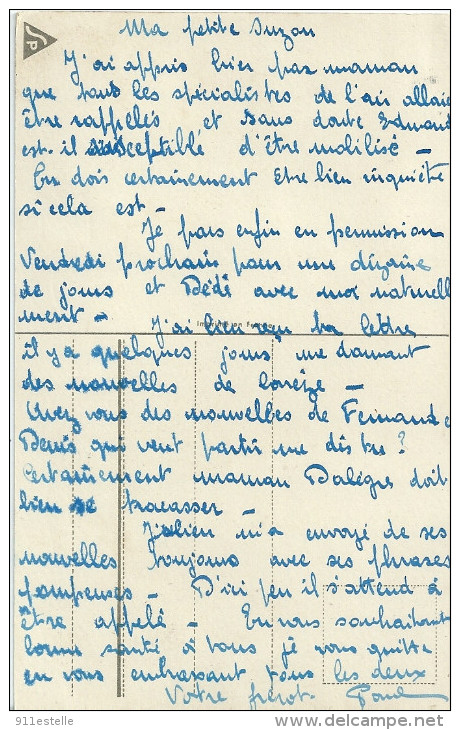 Ma petite Suzon
J'ai appris hier par maman
que tous les spécialistes de l'air allaie
être rappelés et sans doute Edmond
est-il susceptible d'être mobilisé –
Tu dois certainement être bien inquiète
si cela est –
Je pars enfin en permission
Vendredi prochain pour une dizaine
de jours et Dédé avec moi naturell
ment –
J'ai bien reçu ta lettre
il y a quelques jours me donnant
des nouvelles de
Avez vous des nouvelles de Fernand e
Denis qui veut partir me dis tu ?
Certainement maman Dalègre doit
bien se tracasser –
Julien m'a envoyé de ses
nouvelles toujours avec ses phrases
pompeuses – D'ici peu il s'attend à
être appelé – En vous souhaitant
bonne santé à tous je vous quitte
en vous embrassant tous les deux
Votre frérot Paul
911estelle
www.delcampe.net